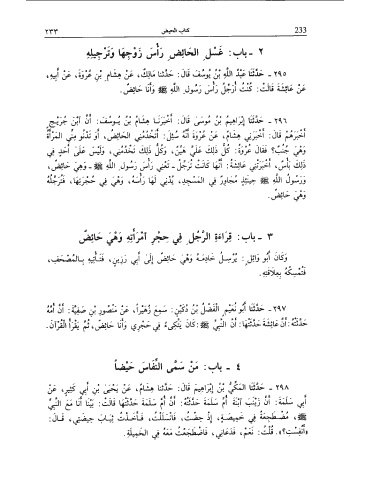 233
كتاب الحيض
٢٣٣
٢ ـ باب: غَسْلِ الحَائِضِ رَأْسَ زَوْجِهَا وَتَرْجِيلِهِ
٢٩٥ ـ حَدَّثَنَا عَبْدُ اللَّهِ بْنُ يُوسُفَ قَالَ: حَدَّثَنَا مَالِكٌ، عَنْ هِشَامِ بْنِ عُرْوَةَ، عَنْ أَبِيهِ،
عَنْ عَائِشَةَ قَالَتْ: كُنْتُ أُرَجِّلُ رَأْسَ رَسُولِ اللَّهِ ﷺ وَأَنَا حَائِضٌ.
٢٩٦ ـ حَدَّثَنَا إِبْرَاهِيمُ بْنُ مُوسَى قَالَ: أَخْبَرَنَا هِشَامُ بْنُ يُوسُفَ: أَنَّ ابْنَ جُرَيْجٍ
أَخْبَرَهُمْ قَالَ: أَخْبَرَنِي هِشَامٌ، عَنْ عُرْوَةَ أَنَّهُ سُئِلَ: أَتَخْدُمُنِي الحَائِضُ، أَوْ تَدْنُو مِنِّي المَرْأَةُ
وَهِيَ جُنُبٌ؟ فَقَالَ عُرْوَةُ: كُلُّ ذَلِكَ عَلَيَّ هَيِّنٌ، وَكُلُّ ذَلِكَ تَخْدُمُنِي، وَلَيْسَ عَلَى أَحَدٍ فِي
ذَلِكَ بَأْسٌ، أَخْبَرَتْنِي عَائِشَةُ: أَنَّهَا كَانَتْ تُرَجِّلُ ـ تَعْنِي رَأْسَ رَسُولِ اللَّهِ ﷺ ـ وَهِيَ حَائِضٌ،
وَرَسُولُ اللَّهِ ﷺ حِينَئِذٍ مُجَاوِرٌ فِي المَسْجِدِ، يُدْنِي لَهَا رَأْسَهُ، وَهِيَ فِي حُجْرَتِهَا، فَتُرَجِّلُهُ
وَهِيَ حَائِضٌ.
٣ ـ باب: قِرَاءَةِ الرَّجُلِ فِي حِجْرِ امْرَأَتِهِ وَهْيَ حَائِضٌ
وَكَانَ أَبُو وَائِلٍ: يُرْسِلُ خَادِمَهُ وَهْيَ حَائِضٌ إِلَى أَبِي رَزِينٍ، فَتَأْتِيهِ بِالمُصْحَفِ،
فَتُمْسِكُهُ بِعِلَاقَتِهِ.
٢٩٧ ـ حَدَّثَنَا أَبُو نُعَيْمٍ الفَضْلُ بْنُ دُكَيْنٍ: سَمِعَ زُهَيْرًا، عَنْ مَنْصُورِ بْنِ صَفِيَّةَ: أَنَّ أُمَّهُ
حَدَّثَتْهُ: أَنَّ عَائِشَةَ حَدَّثَتْهَا: أَنَّ النَّبِيَّ ﷺ كَانَ يَتَّكِئُ فِي حَجْرِي وَأَنَا حَائِضٌ، ثُمَّ يَقْرَأُ القُرْآنَ.
٤ ـ باب: مَنْ سَمَّى النِّفَاسَ حَيْضاً
٢٩٨ ـ حَدَّثَنَا المَكِّيُّ بْنُ إِبْرَاهِيمَ قَالَ: حَدَّثَنَا هِشَامٌ، عَنْ يَحْيَى بْنِ أَبِي كَثِيرٍ، عَنْ
أَبِي سَلَمَةَ: أَنَّ زَيْنَبَ ابْنَةَ أُمِّ سَلَمَةَ حَدَّثَتْهُ: أَنَّ أُمَّ سَلَمَةَ حَدَّثَتْهَا قَالَتْ: بَيْنَا أَنَا مَعَ النَّبِيِّ
ﷺ، مُضْطَجِعَةٌ فِي خَمِيصَةٍ، إِذْ حِضْتُ، فَانْسَلَلْتُ، فَأَخَذْتُ ثِيَابَ حِيضَتِي، قَالَ:
«أَنُفِسْتِ؟». قُلْتُ: نَعَمْ، فَدَعَانِي، فَاضْطَجَعْتُ مَعَهُ فِي الخَمِيلَةِ.